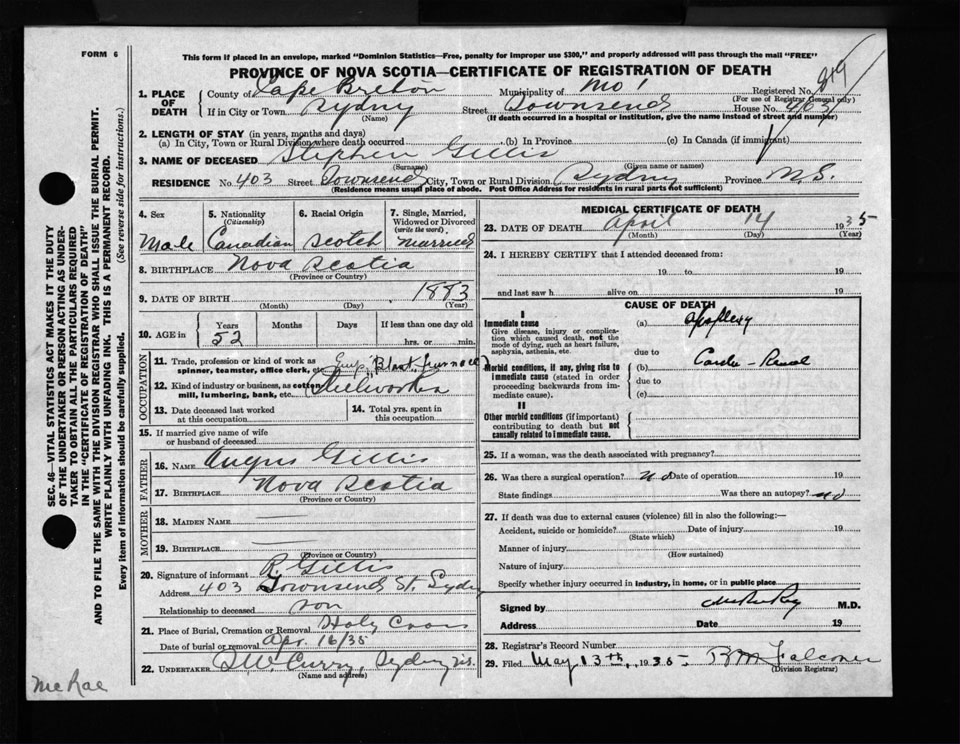 FORM 6
This form if placed in an envelope, marked "Dominion Statistics—Free, penalty for improper use $300," and properly addressed will pass through the mail "FREE"
PROVINCE OF NOVA SCOTIA—CERTIFICATE OF REGISTRATION OF DEATH
1. PLACE OF DEATH
County of Cape Breton Municipality of Registered No. 819
(For use of Registrar General only)
If in City or Town Sydney Street Townsend House No. 403
(Name) (If death occurred in a hospital or institution, give the name instead of street and number)
2. LENGTH OF STAY (in years, months and days)
(a) In City, Town or Rural Division where death occurred (b) In Province (c) In Canada (if immigrant)
3. NAME OF DECEASED Stephen Gillis
(Surname) (Given name or names)
RESIDENCE No. 403 Street Townsend City, Town or Rural Division Sydney Province N.S.
(Residence means usual place of abode. Post Office Address for residents in rural parts not sufficient)
4. Sex
Male
5. Nationality
(Citizenship)
Canadian
6. Racial Origin
Scotch
7. Single, Married, Widowed or Divorced
(write the word)
Married
8. BIRTHPLACE Nova Scotia
(Province or Country)
9. DATE OF BIRTH 1883
(Month) (Day) (Year)
10. AGE in
Years Months Days If less than one day old
52 hrs. or min.
OCCUPATION
11. Trade, profession or kind of work as
spinner, teamster, office clerk, etc. Blast Furnace
12. Kind of industry or business, as cotton
mill, lumbering, bank, etc. Steelworker
13. Date deceased last worked
at this occupation
14. Total yrs. spent in
this occupation
15. If married give name of wife
or husband of deceased
FATHER
16. NAME Angus Gillis
17. BIRTHPLACE Nova Scotia
(Province or Country)
MOTHER
18. MAIDEN NAME
19. BIRTHPLACE
(Province or Country)
20. Signature of informant R. Gillis
Address 403 Townsend St. Sydney
Relationship to deceased son
21. Place of Burial, Cremation or Removal Holy Cross
Date of burial or removal Apr. 16/35
22. UNDERTAKER Curry, Sydney
(Name and address)
McRae
MEDICAL CERTIFICATE OF DEATH
23. DATE OF DEATH April 14 1935
(Month) (Day) (Year)
24. I HEREBY CERTIFY that I attended deceased from:
19 to 19
and last saw h alive on 19
CAUSE OF DEATH
I
Immediate cause
Give disease, injury or complication which caused death, not the mode of dying, such as heart failure, asphyxia, asthenia, etc.
(a) Apoplexy
due to
Morbid conditions, if any, giving rise to immediate cause (stated in order proceeding backwards from immediate cause)
(b) Cardio-Renal
due to
(c)
II
Other morbid conditions (if important) contributing to death but not causally related to immediate cause.
25. If a woman, was the death associated with pregnancy?
26. Was there a surgical operation? no Date of operation 19
State findings Was there an autopsy? no
27. If death was due to external causes (violence) fill in also the following:—
Accident, suicide or homicide? Date of injury 19
(State which)
Manner of injury
(How sustained)
Nature of injury
Specify whether injury occurred in industry, in home, or in public place
Signed by M.D.
Address Date 19
28. Registrar's Record Number
29. Filed May 13th 1935 Falconer
(Division Registrar)
SEC. 46—VITAL STATISTICS ACT MAKES IT THE DUTY
OF THE UNDERTAKER OR PERSON ACTING AS UNDER-
TAKER TO OBTAIN ALL THE PARTICULARS REQUIRED
IN THE "CERTIFICATE OF REGISTRATION OF DEATH"
AND TO FILE THE SAME WITH THE DIVISION REGISTRAR WHO SHALL ISSUE THE BURIAL PERMIT.
WRITE PLAINLY WITH UNFADING INK. THIS IS A PERMANENT RECORD.
Every item of information should be carefully supplied. (See reverse side for instructions.)